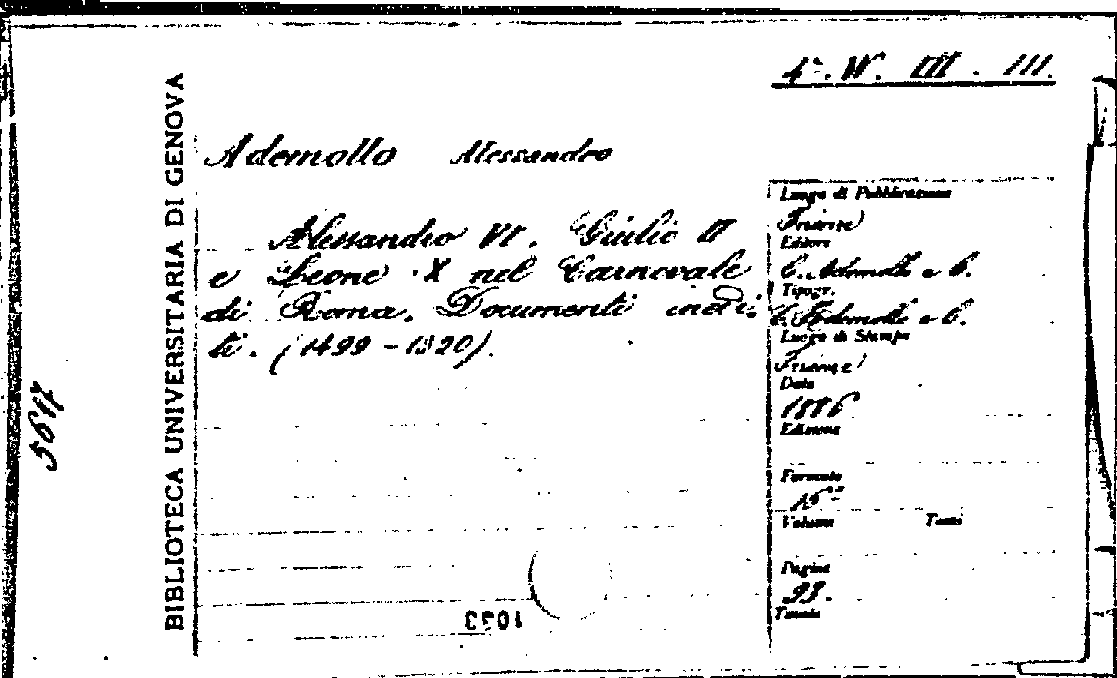 4ª. W. III. III.
BIBLIOTECA UNIVERSITARIA DI GENOVA
Ademollo Alessandro
Alessandro VI. Giulio II
e Leone X nel Carnevale
di Roma. Documenti inedi-
ti. (1499-1520).
Luogo di Pubblicazione
Firenze
Editore
C. Ademollo e C.
Tipogr.
C. Ademollo e C.
Luogo di Stampa
Firenze
Data
1886
Edizione
Formato
Volume Tomi
Pagine
Tavole
5617
1033